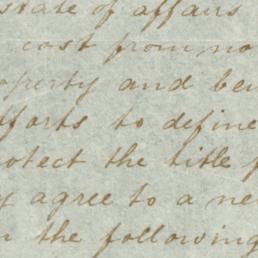 state of affairs
cost from no
operty and be
fforts to define
rotect the title
y agree to a ne
n the following